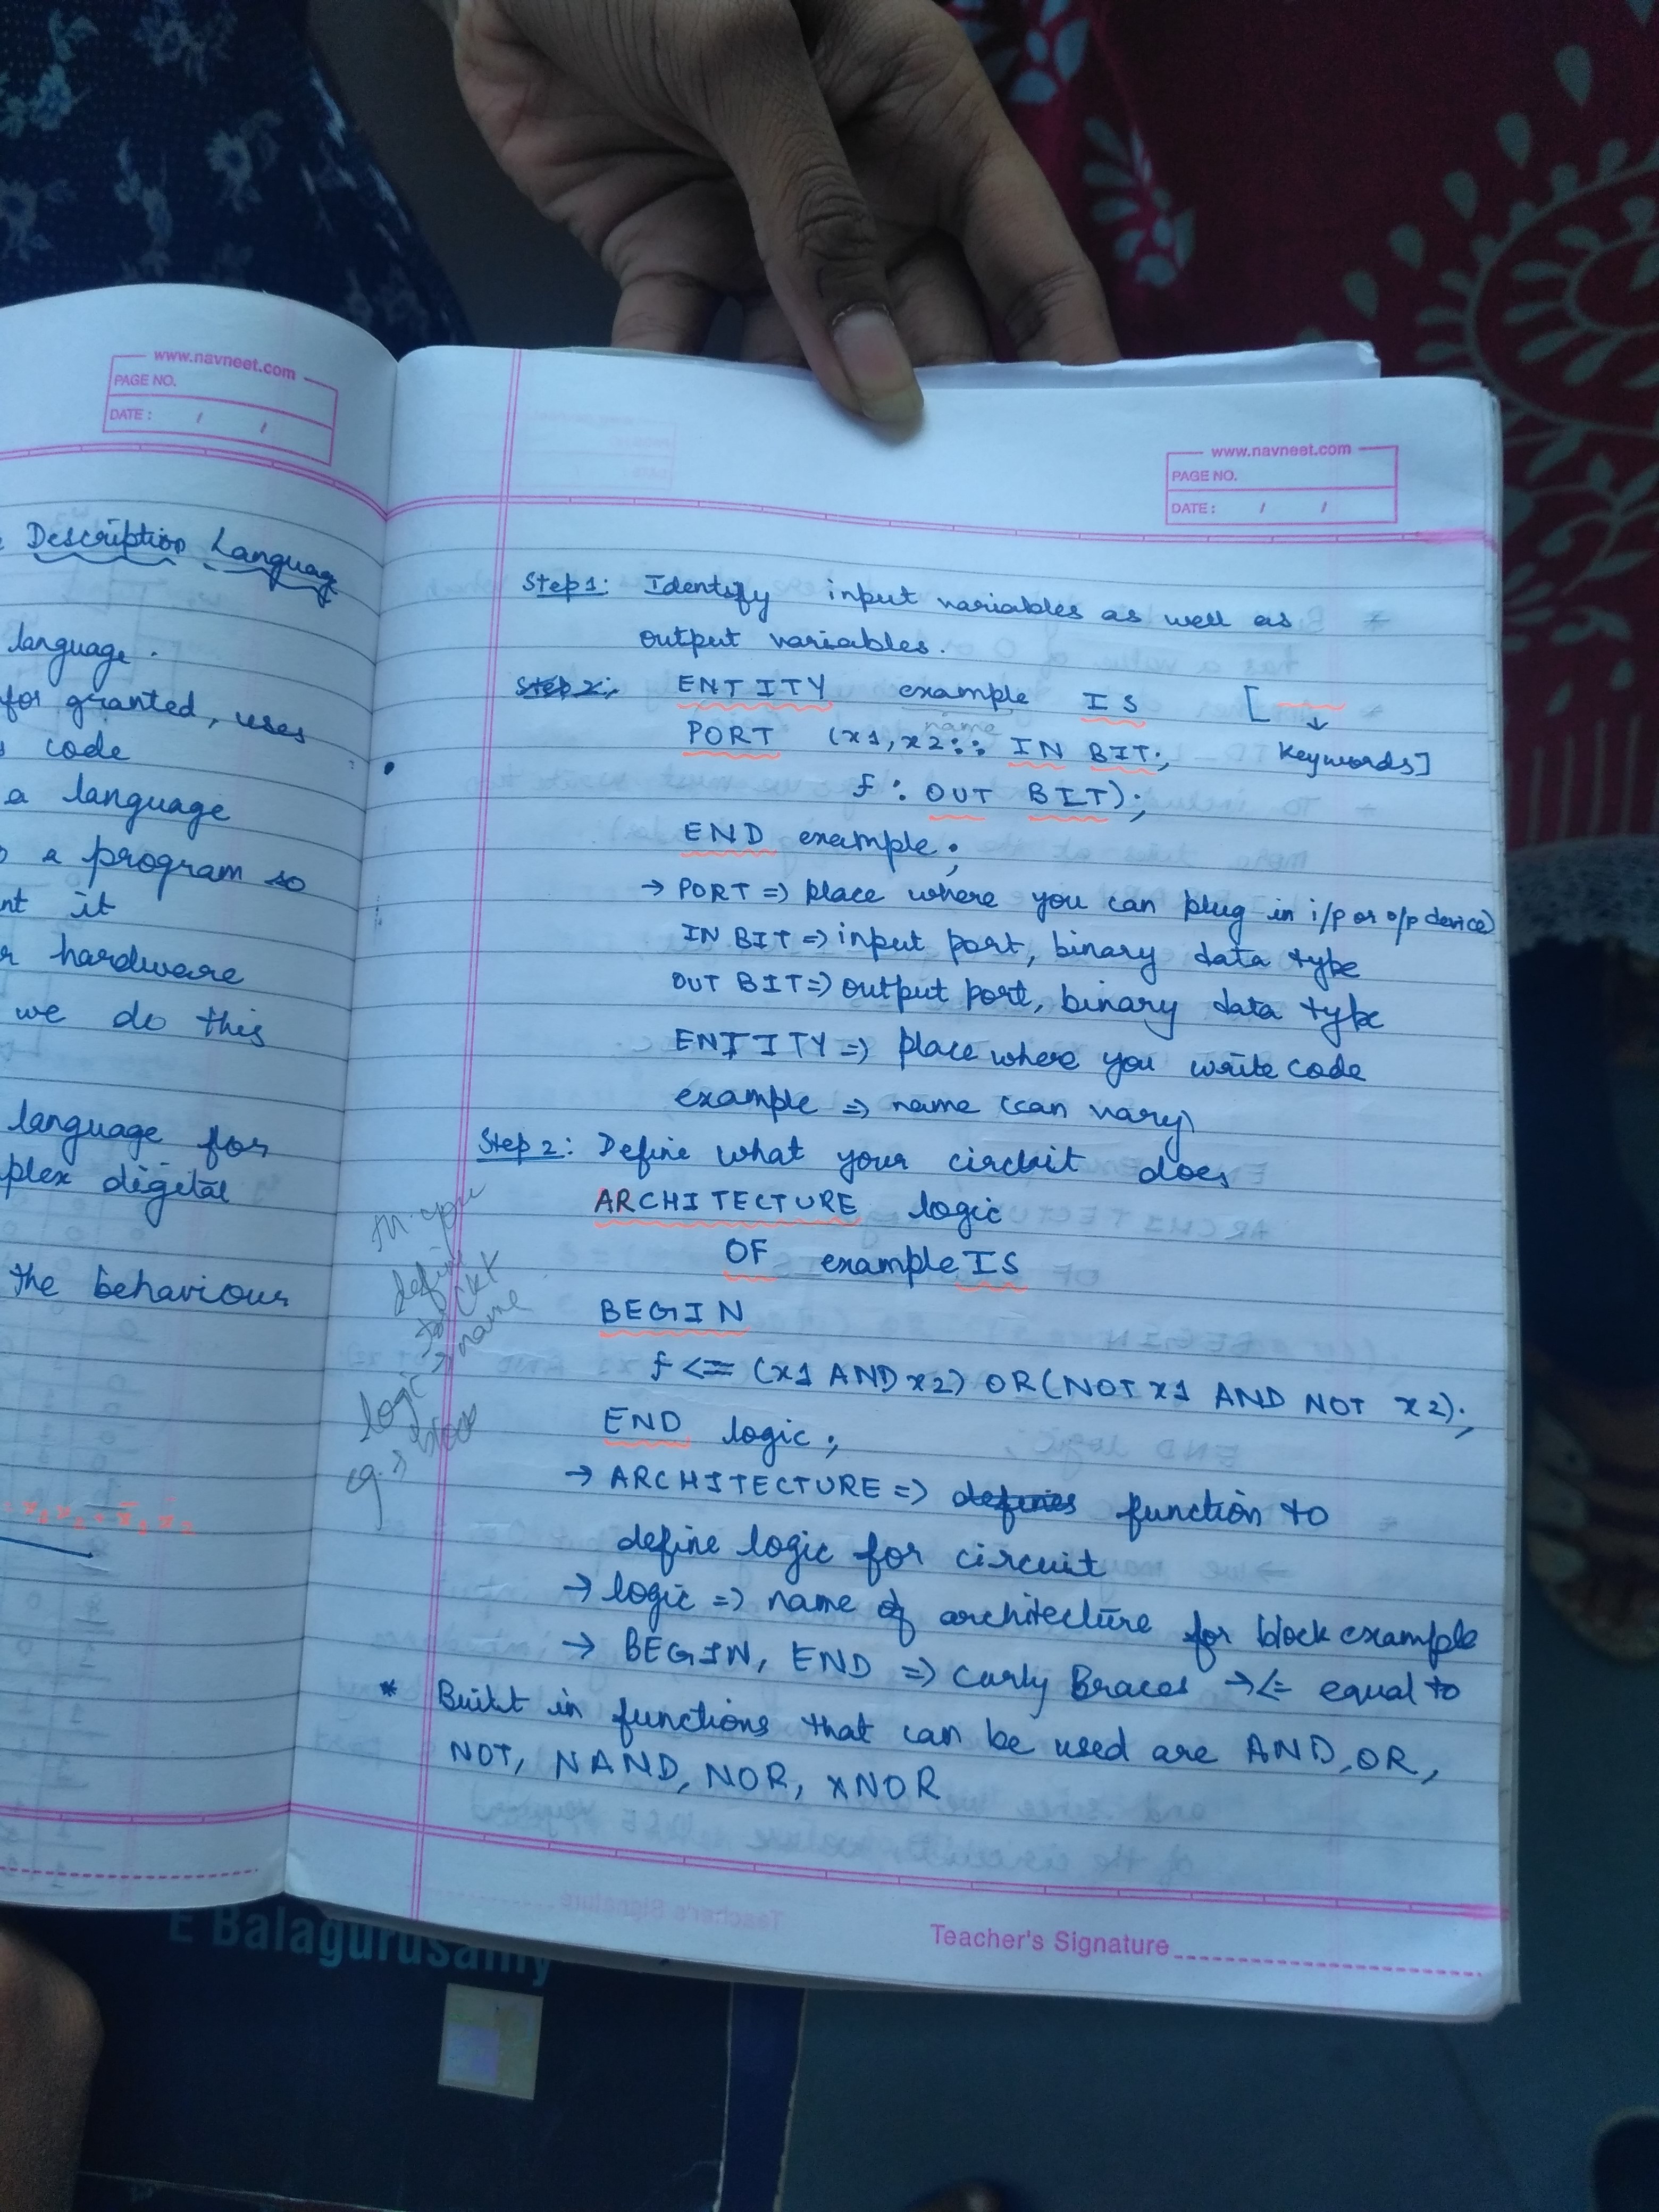 www.navneet.com
PAGE NO.
DATE: / /
Description Languag
language.
for granted, uses
code
a language
a program so
nt it
hardware
we do this
language for
plex digital
the behaviour
www.navneet.com
PAGE NO.
DATE: / /
Step 1: Identify input variables as well as
output variables.
Step 2: ENTITY example IS [ ↓
name
PORT (x1, x2:: IN BIT; keywords]
f: OUT BIT);
END example;
→ PORT => place where you can plug in i/p or o/p device)
IN BIT => input port, binary data type
OUT BIT => output port, binary data type
ENTITY => place where you write code
example => name (can vary)
Step 2: Define what your circuit does
ARCHITECTURE logic
OF example IS
BEGIN
f <= (x1 AND x2) OR (NOT x1 AND NOT x2);
END logic;
→ ARCHITECTURE => defines function to
define logic for circuit
→ logic => name of architecture for block example
→ BEGIN, END => Curly Braces → <= equal to
* Built in functions that can be used are AND, OR,
NOT, NAND, NOR, XNOR
you
define
ckt
logic → name
eg. → block
Teacher's Signature
E Balagurusamy